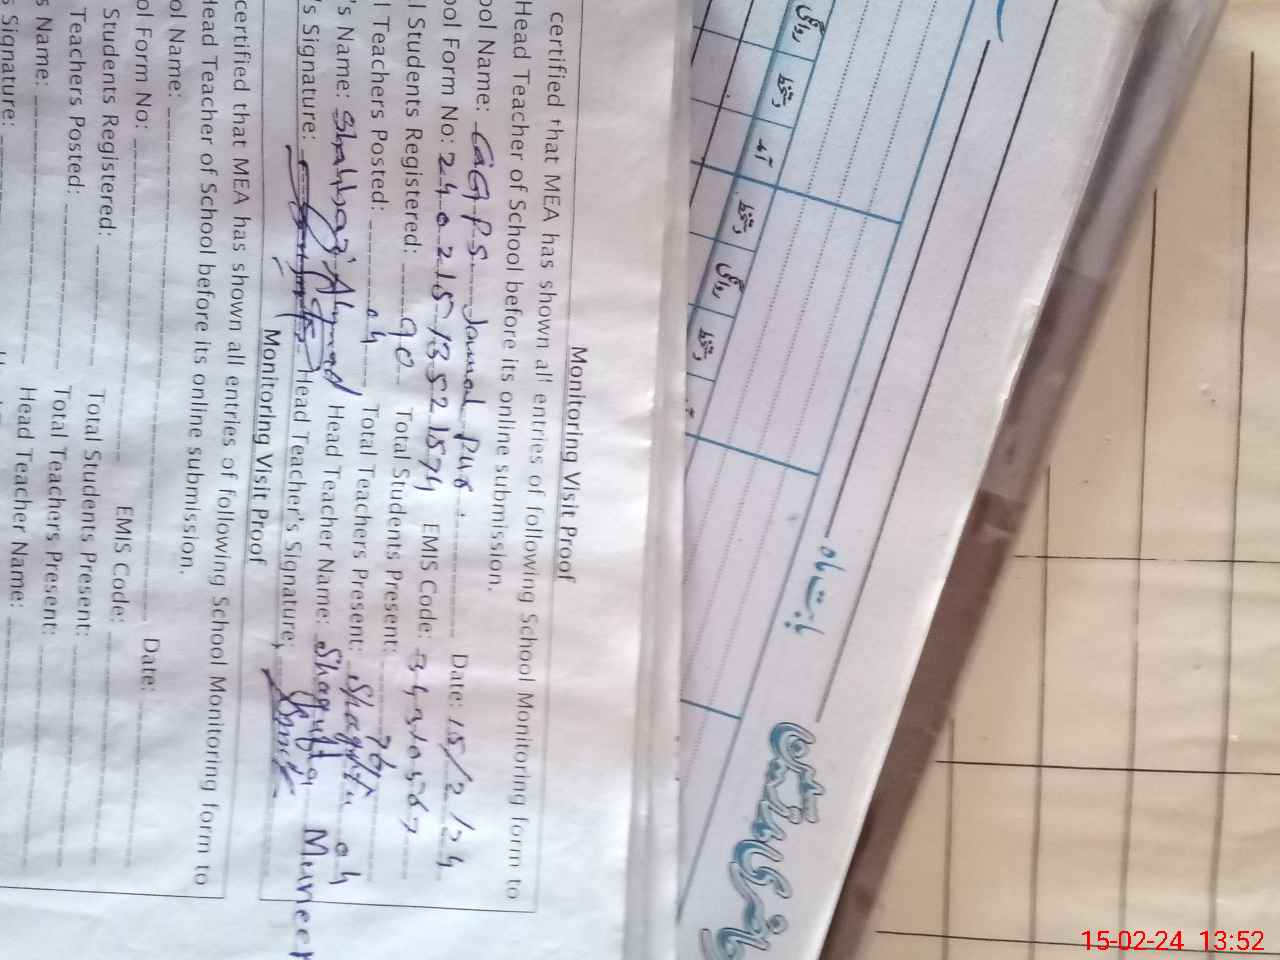 Monitoring Visit Proof
certified that MEA has shown all entries of following School Monitoring form to
Head Teacher of School before its online submission.
ool Name: GGPS Jamal Pur Date: 15/2/24
ool Form No: 24021513521574 EMIS Code: 34310567
l Students Registered: 90 Total Students Present: 76
l Teachers Posted: 04 Total Teachers Present: 04
's Name: Shahbaz Ahmad Head Teacher Name: Shagufta Muneer
's Signature: Head Teacher's Signature:
Monitoring Visit Proof
certified that MEA has shown all entries of following School Monitoring form to
Head Teacher of School before its online submission.
ol Name: Date:
ol Form No: EMIS Code:
Students Registered: Total Students Present:
Teachers Posted: Total Teachers Present:
s Name: Head Teacher Name:
s Signature:
روانگی دستخط آمد دستخط روانگی دستخط
بابت ماہ
15-02-24 13:52